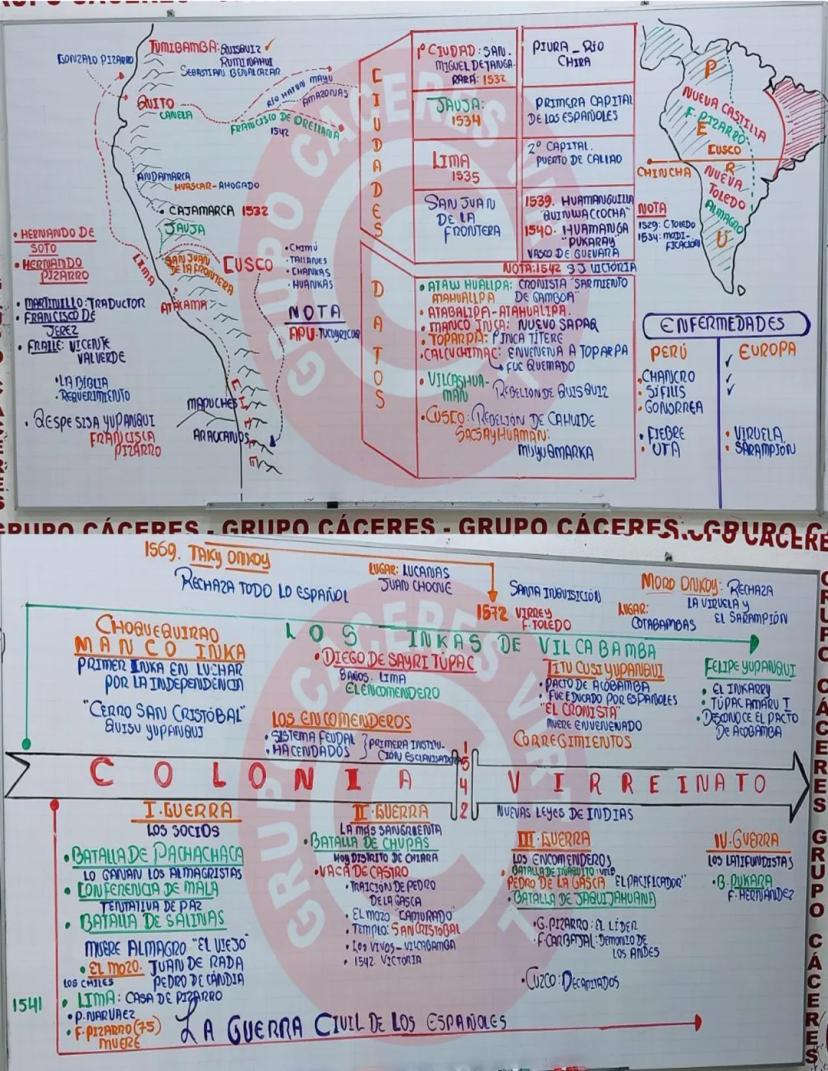 GONZALO PIZARRO
TUMIBAMBA: QUISQUIZ
RUMIÑAHUI
SEBASTIAN BENALCAZAR
QUITO
CANELA
RÍO HATUN MAYU
AMAZONAS
FRANCISCO DE ORELLANA
1542
ANDAMARCA
HUASCAR-AHOGADO
CAJAMARCA 1532
JAUJA
SAN JUAN
DE LA FRONTERA
CUSCO
LIMA
ATAKAMA
MAPUCHES
ARAUCANOS
• HERNANDO DE
SOTO
• HERNANDO
PIZARRO
• MARTINILLO: TRADUCTOR
• FRANCISCO DE
JEREZ
• FRAILE: VICENTE
VALVERDE
• LA BIBLIA
• REQUERIMIENTO
• QESPE SISA YUPANQUI
FRANCISCA
PIZARRO
• CHIMÚ
• TALLANES
• CHANKAS
• HUANKAS
NOTA
APU-TUCUYRICUC
CIUDADES
1º CIUDAD: SAN
MIGUEL DE TANGA-
RARÁ: 1532
PIURA - RÍO
CHIRA
JAUJA:
1534
PRIMERA CAPITAL
DE LOS ESPAÑOLES
LIMA
1535
2º CAPITAL.
PUERTO DE CALLAO
SAN JUAN
DE LA
FRONTERA
1539. HUAMANGUILLA
"QUINUACCOCHA"
1540. HUAMANGA
"PUKARAY"
VASCO DE GUEVARA
NOTA: 1542 SJ VICTORIA
DATOS
• ATAW HUALLPA: CRONISTA "SARMIENTO
MAHUALLPA DE GAMBOA"
• ATABALIPA-ATAHUALIPA.
• MANCO INCA: NUEVO SAPAQ
• TOPARPA: 1º INCA TÍTERE
• CALCUCHIMAC: ENVENENA A TOPARPA
FUE QUEMADO
• VILCASHUA-
MÁN - REBELIÓN DE QUISQUIZ
• CUSCO: REBELIÓN DE CAHUIDE
SACSAYHUAMÁN:
MUYUQMARKA
PERÚ
NUEVA CASTILLA
F. PIZARRO
CUSCO
CHINCHA
NUEVA
TOLEDO
ALMAGRO
NOTA
1529: C. TOLEDO
1534: MODI-
FICACIÓN
ENFERMEDADES
PERÚ
EUROPA
• CHANCRO
• SÍFILIS
• GONORREA
• FIEBRE
• UTA
• VIRUELA
• SARAMPIÓN
GRUPO CÁCERES - GRUPO CÁCERES - GRUPO CÁCERES
1569. TAKY ONKOY
RECHAZA TODO LO ESPAÑOL
LUGAR: LUCANAS
JUAN CHOCNE
1572
SANTA INQUISICIÓN
VIRREY
F. TOLEDO
MORO ONKOY: RECHAZA
LA VIRUELA Y
EL SARAMPIÓN
LUGAR:
COTABAMBAS
LOS INKAS DE VILCABAMBA
CHOQUEQUIRAO
MANCO INKA
PRIMER INKA EN LUCHAR
POR LA INDEPENDENCIA
"CERRO SAN CRISTÓBAL"
QUISU YUPANQUI
• DIEGO DE SAYRI TÚPAC
3 AÑOS. LIMA
EL ENCOMENDERO
LOS ENCOMENDEROS
• SISTEMA FEUDAL
• HACENDADOS
PRIMERA INSTITU-
CIÓN ESCLAVISADORA
TITU CUSI YUPANQUI
• PACTO DE ACOBAMBA
• FUE EDUCADO POR ESPAÑOLES
"EL CRONISTA"
MUERE ENVENENADO
CORREGIMIENTOS
FELIPE YUPANQUI
• EL INKARRY
• TÚPAC AMARU I
• DESCONOCE EL PACTO
DE ACOBAMBA
COLONIA 1542 VIRREINATO
NUEVAS LEYES DE INDIAS
I. GUERRA
LOS SOCIOS
• BATALLA DE PACHACHACA
LO GANAN LOS ALMAGRISTAS
• CONFERENCIA DE MALA
TENTATIVA DE PAZ
• BATALLA DE SALINAS
MUERE ALMAGRO "EL VIEJO"
• EL MOZO. JUAN DE RADA
LOS CHILES PEDRO DE CANDIA
1541
• LIMA: CASA DE PIZARRO
• P. NARVAEZ
• F. PIZARRO (75)
MUERE
II. GUERRA
LA MÁS SANGRIENTA
• BATALLA DE CHUPAS
HOY DISTRITO DE CHIARA
• VACA DE CASTRO
• TRAICIÓN DE PEDRO
DE LA GASCA
• EL MOZO "CAPTURADO"
• TEMPLO: SAN CRISTOBAL
• LOS VIVOS - VILCABAMBA
• 1542 VICTORIA
III. GUERRA
LOS ENCOMENDEROS
• BATALLA DE IÑAQUITO: VELA
PEDRO DE LA GASCA "EL PACIFICADOR"
• BATALLA DE JAQUIJAHUANA
• G. PIZARRO: EL LÍDER
• F. CARBAJAL: DEMONIO DE
LOS ANDES
• CUZCO: DECAPITADOS
IV. GUERRA
LOS LATIFUNDISTAS
• B. PUKARA
F. HERNÁNDEZ
LA GUERRA CIVIL DE LOS ESPAÑOLES
GRUPO CÁCERES GRUPO CÁCERES